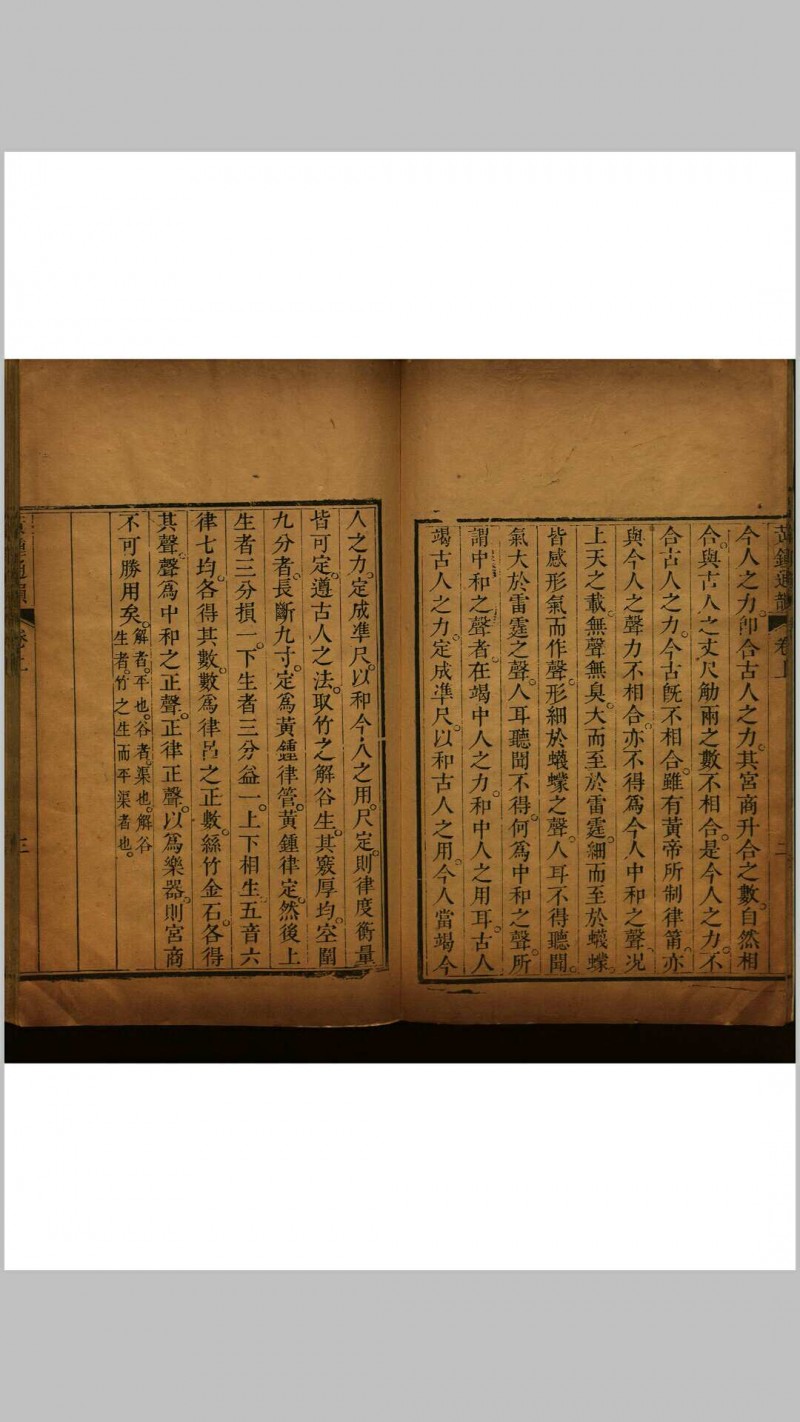 黃鍾通韻 卷上 二
今人之力。卽合古人之力。其宮商升合之數。自然相
合。與古人之丈尺觔兩之數不相合。是今人之力。不
合古人之力。今古旣不相合。雖有黃帝所制律筩。亦
與今人之聲力不相合。亦不得爲今人中和之聲。况
上天之載。無聲無臭。大而至於雷霆。細而至於蠛蠓。
皆感形氣而作聲。形細於蠛蠓之聲。人耳不得聽聞。
氣大於雷霆之聲。人耳聽聞不得。何爲中和之聲。所
謂中和之聲者。在竭中人之力。和中人之用耳。古人
竭古人之力。定成準尺。以和古人之用。今人當竭今
人之力。定成準尺。以和今人之用。尺定。則律度衡量
皆可定。遵古人之法。取竹之解谷生。其竅厚均。空圍
九分者。長斷九寸。定爲黃鍾律管。黃鍾律定。然後上
生者三分損一。下生者三分益一。上下相生。五音六
律七均。各得其數。數爲律呂之正數。絲竹金石。各得
其聲。聲爲中和之正聲。正律正聲。以爲樂器。則宮商
不可勝用矣。解者。平也。谷者。渠也。解谷
生者。竹之生而平渠者也。
黃鍾通韻 卷上 三